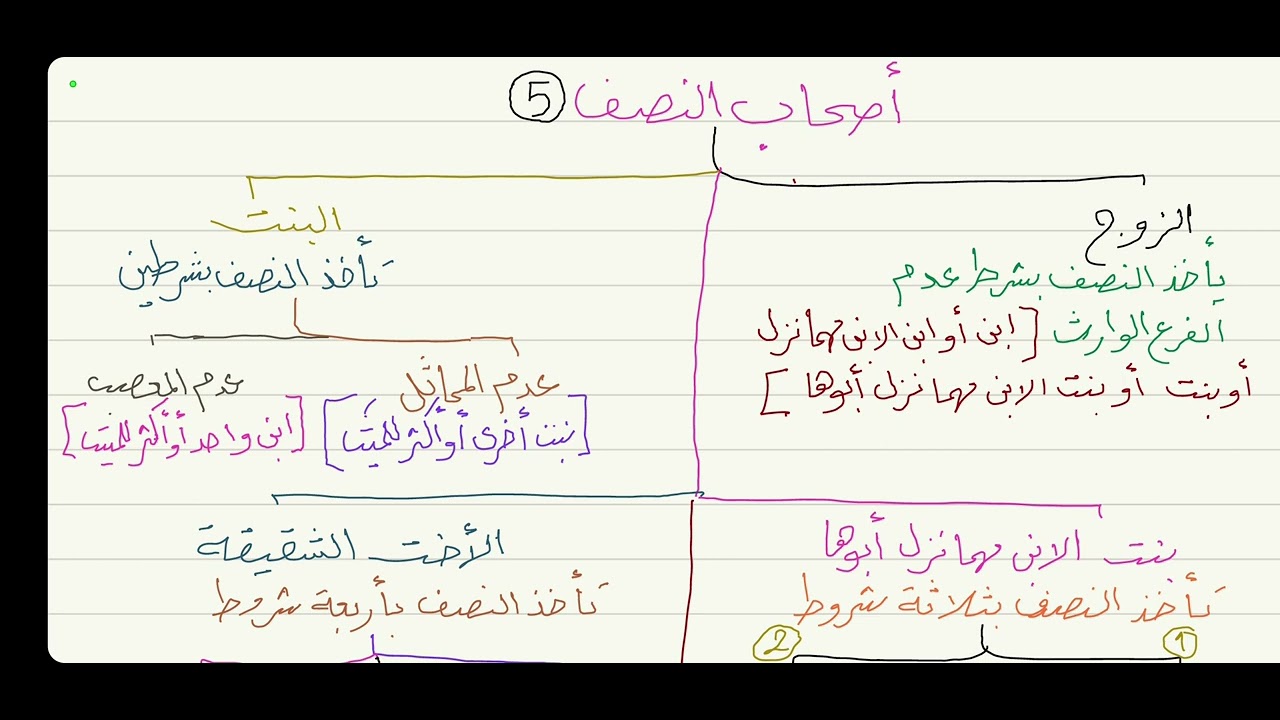 أصحاب النصف 5
الزوج
يأخذ النصف بشرط عدم
الفرع الوارث [ابن أو ابن الابن مهما نزل
أو بنت أو بنت الابن مهما نزل أبوها]
البنت
تأخذ النصف بشرطين
عدم المماثل
[بنت أخرى أو أكثر للميت]
عدم المعصب
[ابن واحد أو أكثر للميت]
بنت الابن مهما نزل أبوها
تأخذ النصف بثلاثة شروط
1
2
الأخت الشقيقة
تأخذ النصف بأربعة شروط